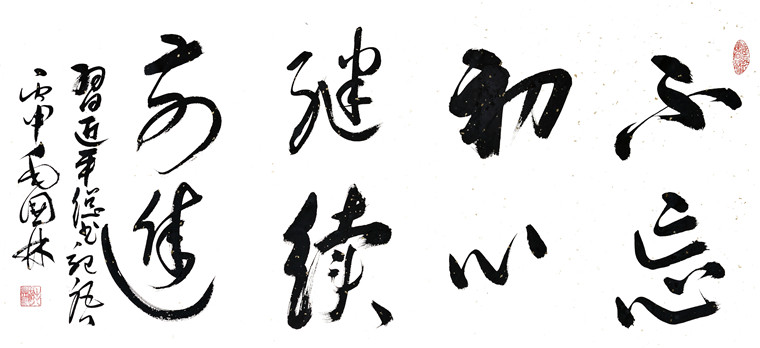 不忘
初心
继续
前進
習近平總书记语
丙申毛国林